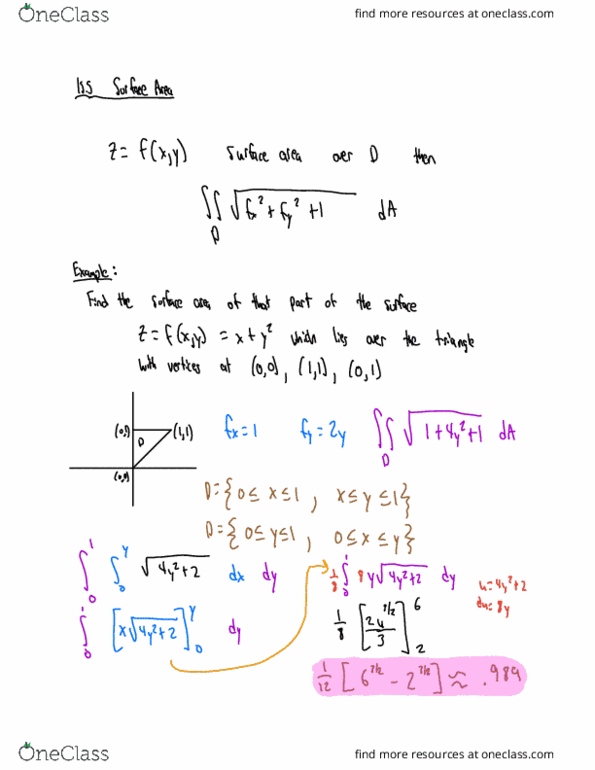 OneClass
find more resources at oneclass.com
15.5 Surface Area
Z = f(x,y) surface area over D then
∬_D √(fx² + fy² + 1) dA
Example:
Find the surface area of that part of the surface
Z = f(x,y) = x + y² which lies over the triangle
with vertices at (0,0), (1,1), (0,1)
(0,1) D (1,1)
(0,0)
fx = 1 fy = 2y ∬_D √(1+4y²+1) dA
D = {0 ≤ x ≤ 1, x ≤ y ≤ 1}
D = {0 ≤ y ≤ 1, 0 ≤ x ≤ y}
∫₀¹ ∫₀^y √(4y²+2) dx dy
∫₀¹ [x√(4y²+2)]₀^y dy
1/8 ∫₀¹ 8y√(4y²+2) dy
u = 4y²+2
du = 8y
1/8 [2u^(3/2)/3]₂⁶
1/12 [6^(3/2) − 2^(3/2)] ≈ .989
OneClass
find more resources at oneclass.com